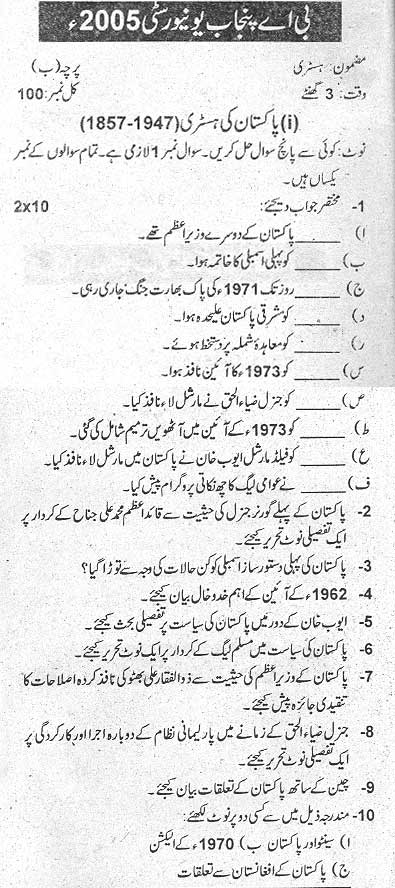 بی اے پنجاب یونیورسٹی 2005ء
مضمون: ہسٹری پرچہ (ب)
وقت: 3 گھنٹے کل نمبر: 100
(i) پاکستان کی ہسٹری (1857-1947)
نوٹ: کوئی سے پانچ سوال حل کریں۔ سوال نمبر 1 لازمی ہے۔ تمام سوالوں کے نمبر
یکساں ہیں۔
1- مختصر جواب دیجئے: 2x10
ا) _____ پاکستان کے دوسرے وزیراعظم تھے۔
ب) _____ کو پہلی اسمبلی کا خاتمہ ہوا۔
ج) _____ روز تک 1971ء کی پاک بھارت جنگ جاری رہی۔
د) _____ کو مشرقی پاکستان علیحدہ ہوا۔
ر) _____ کو معاہدۂ شملہ پر دستخط ہوئے۔
س) _____ کو 1973ء کا آئین نافذ ہوا۔
ص) _____ کو جنرل ضیاء الحق نے مارشل لاء نافذ کیا۔
ط) _____ کو 1973ء کے آئین میں آٹھویں ترمیم شامل کی گئی۔
ع) _____ کو فیلڈ مارشل ایوب خان نے پاکستان میں مارشل لاء نافذ کیا۔
ف) _____ نے عوامی لیگ کا چھ نکاتی پروگرام پیش کیا۔
2- پاکستان کے پہلے گورنر جنرل کی حیثیت سے قائداعظم محمد علی جناح کے کردار پر
ایک تفصیلی نوٹ تحریر کیجئے۔
3- پاکستان کی پہلی دستور ساز اسمبلی کو کن حالات کی وجہ سے توڑا گیا؟
4- 1962ء کے آئین کے اہم خدوخال بیان کیجئے۔
5- ایوب خان کے دور میں پاکستان کی سیاست پر تفصیلی بحث کیجئے۔
6- پاکستان کی سیاست میں مسلم لیگ کے کردار پر ایک نوٹ تحریر کیجئے۔
7- پاکستان کے وزیراعظم کی حیثیت سے ذوالفقار علی بھٹو کی نافذ کردہ اصلاحات کا
تنقیدی جائزہ پیش کیجئے۔
8- جنرل ضیاء الحق کے زمانے میں پارلیمانی نظام کے دوبارہ اجرا اور کارکردگی پر
ایک تفصیلی نوٹ تحریر کیجئے۔
9- چین کے ساتھ پاکستان کے تعلقات بیان کیجئے۔
10- مندرجہ ذیل میں سے کسی دو پر نوٹ لکھئے:
ا) سینٹو اور پاکستان ب) 1970ء کے الیکشن
ج) پاکستان کے افغانستان سے تعلقات